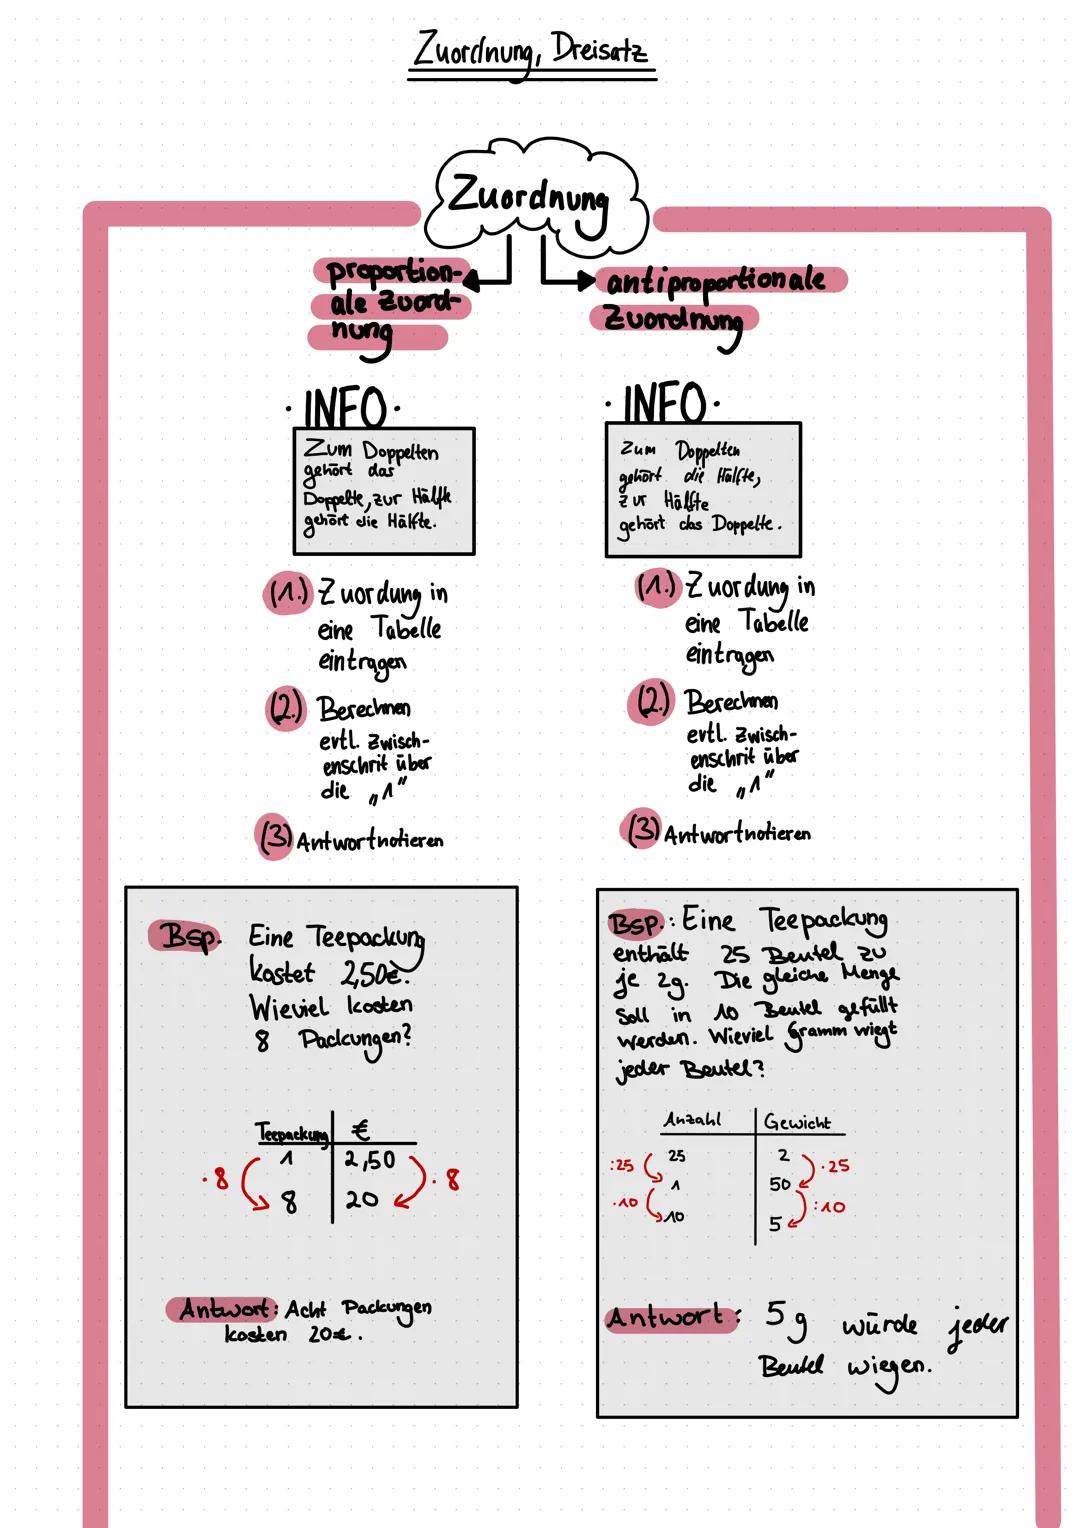 Zuordnung, Dreisatz
Zuordnung
proportion-
ale Zuord-
nung
antiproportionale
Zuordnung
· INFO ·
Zum Doppelten
gehört das
Doppelte, zur Hälfte
gehört die Hälfte.
(1.) Zuordung in
eine Tabelle
eintragen
(2.) Berechnen
evtl. Zwisch-
enschrit über
die „1"
(3) Antwort notieren
· INFO ·
Zum Doppelten
gehört die Hälfte,
zur Hälfte
gehört das Doppelte.
(1.) Zuordung in
eine Tabelle
eintragen
(2.) Berechnen
evtl. Zwisch-
enschrit über
die „1"
(3) Antwort notieren
Bsp. Eine Teepackung
kostet 2,50€.
Wieviel kosten
8 Packungen?
Teepackung €
1 2,50
·8 ·8
8 20
Antwort: Acht Packungen
kosten 20€.
Bsp.: Eine Teepackung
enthält 25 Beutel zu
je 2g. Die gleiche Menge
Soll in 10 Beutel gefüllt
werden. Wieviel Gramm wiegt
jeder Beutel?
Anzahl Gewicht
25 2
:25 ·25
1 50
·10 :10
10 5
Antwort: 5g würde jeder
Beutel wiegen.